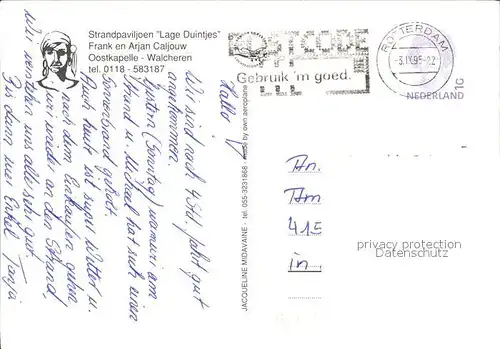 Strandpaviljoen "Lage Duintjes"
Frank en Arjan Caljouw
Oostkapelle - Walcheren
tel. 0118 - 583187
POSTCODE
Gebruik 'm goed.
ROTTERDAM
-3.IX.95-22
NEDERLAND
JACQUELINE MIDAVAINE - tel. 055-3231868 - made by own aeroplane
Hallo!
Wir sind nach 4 Std. Fahrt gut
angekommen.
Gestern (Sonntag) waren wir am
Strand u. Michael hat sich einen
Sonnenbrand geholt.
Auch heute ist super Wetter u.
nach dem Einkaufen gehen
wir wieder an den Strand,
Wir verstehen uns alle sehr gut.
Bis dann euer Enkel Tanja
An.
Am
415
in
privacy protection
Datenschutz